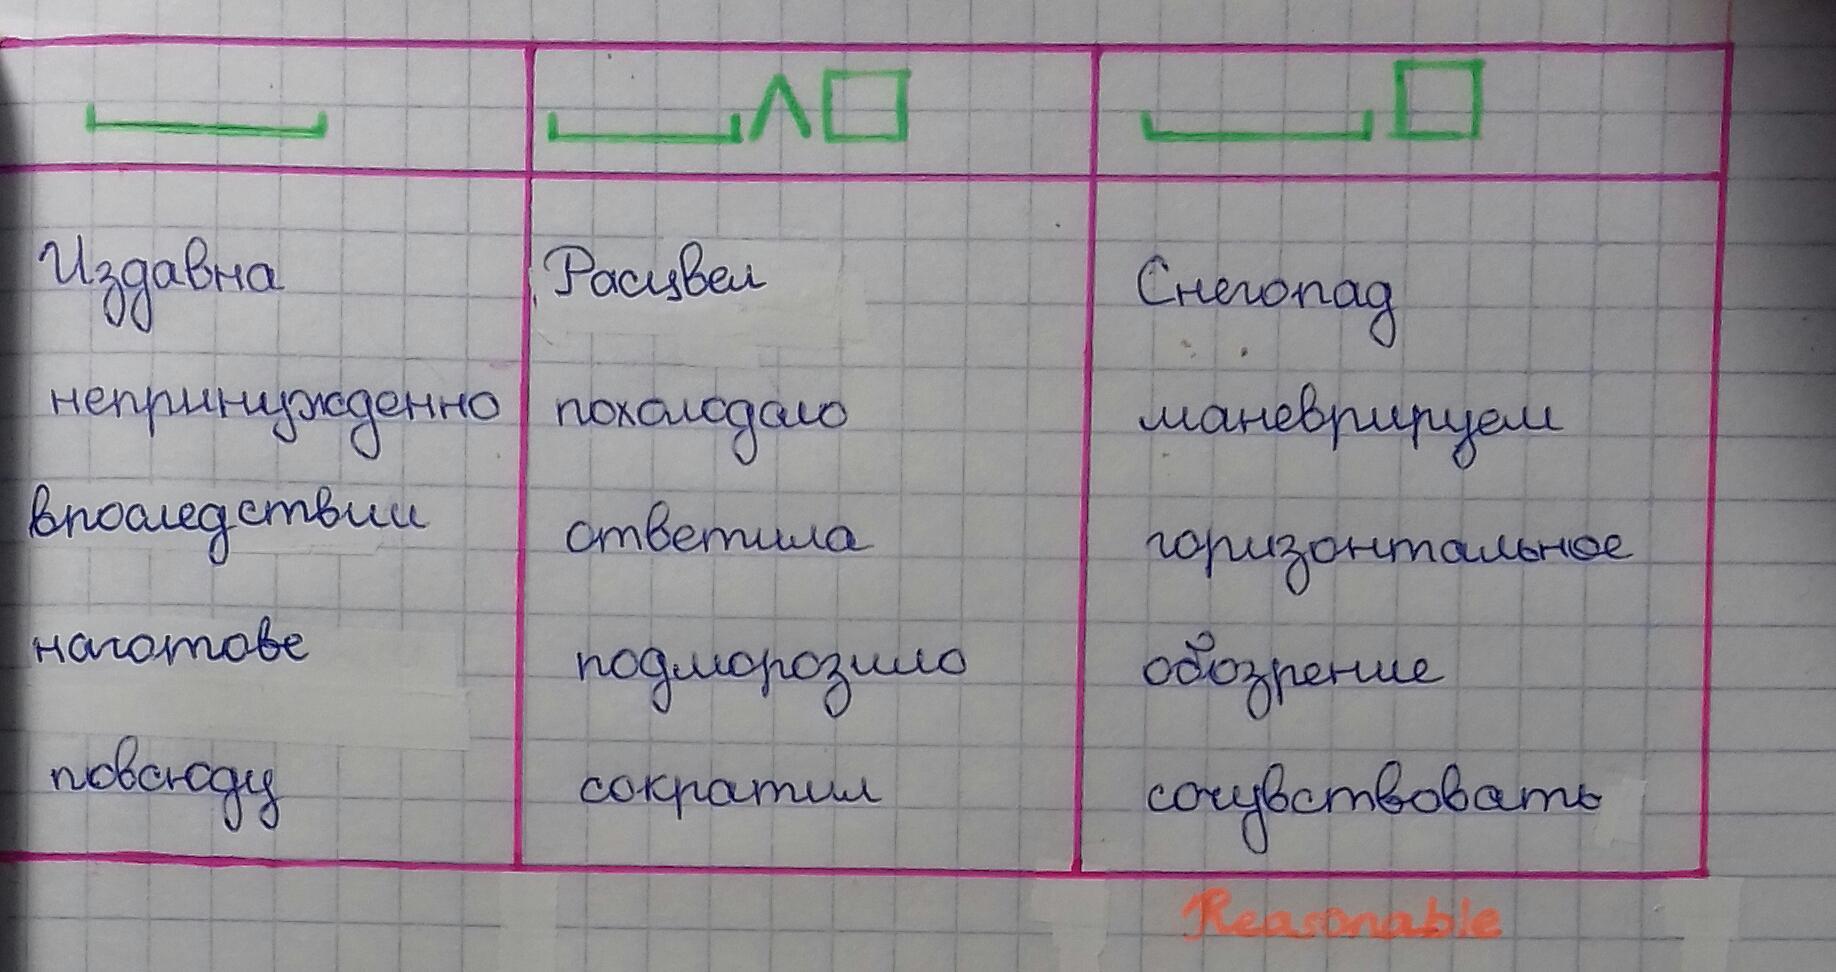 Издавна Расцвел Снегопад
непринужденно похолодало маневрируем
впоследствии ответила горизонтальное
наготове подморозило обозрение
повсюду сократил сочувствовать
Reasonable